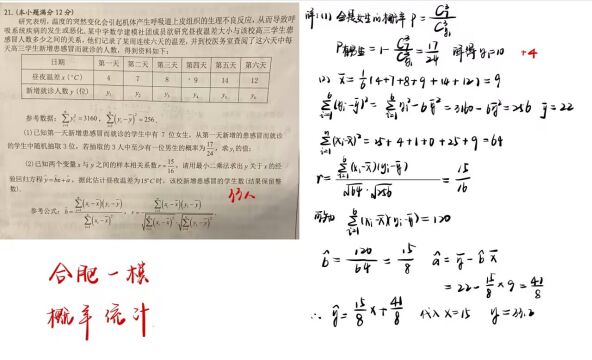 21.(本小题满分12分)
研究表明,温度的突然变化会引起机体产生呼吸道上皮组织的生理不良反应,从而导致呼
吸系统疾病的发生或恶化。某中学数学建模社团成员欲研究昼夜温差大小与该校高三学生患
感冒人数多少之间的关系,他们记录了某周连续六天的温差,并到校医务室查阅了这六天中每
天高三学生新增患感冒而就诊的人数,得到资料如下:
日期 第一天 第二天 第三天 第四天 第五天 第六天
昼夜温差x(℃) 4 7 8 9 14 12
新增就诊人数y(位) y₁ y₂ y₃ y₄ y₅ y₆
参考数据:∑yᵢ²=3160,∑(yᵢ-ȳ)²=256.
(1)已知第一天新增患感冒而就诊的学生中有 7 位女生,从第一天新增的患感冒而就诊
的学生中随机抽取3位,若抽取的3人中至少有一位男生的概率为17/24,求y₁的值;
(2)已知两个变量x与y之间的样本相关系数r=15/16,请用最小二乘法求出y关于x的经
验回归方程ŷ=b̂x+â,据此估计昼夜温差为15℃时,该校新增患感冒的学生数(结果保留整
数).
参考公式:b̂=∑(xᵢ-x̄)(yᵢ-ȳ)/∑(xᵢ-x̄)²,r=∑(xᵢ-x̄)(yᵢ-ȳ)/√∑(xᵢ-x̄)²·√∑(yᵢ-ȳ)².
合肥一模
概率统计
解:(1) 全是女生的概率 P=C₇³/C³y₁
=1-C₇³/C³y₁=17/24 解得y₁=10 +4
(2) x̄=1/6(4+7+8+9+14+12)=9
∑(yᵢ-ȳ)²=∑yᵢ²-6ȳ²=3160-6ȳ²=256 ȳ=22
∑(xᵢ-x̄)²=25+4+1+0+25+9=64
r=∑(xᵢ-x̄)(yᵢ-ȳ)/√64·√256=15/16
∑(xᵢ-x̄)(yᵢ-ȳ)=120
b̂=120/64=15/8 â=ȳ-b̂x̄
=22-15/8×9=41/8
∴ŷ=15/8x+41/8 代入x=15 y=33.2